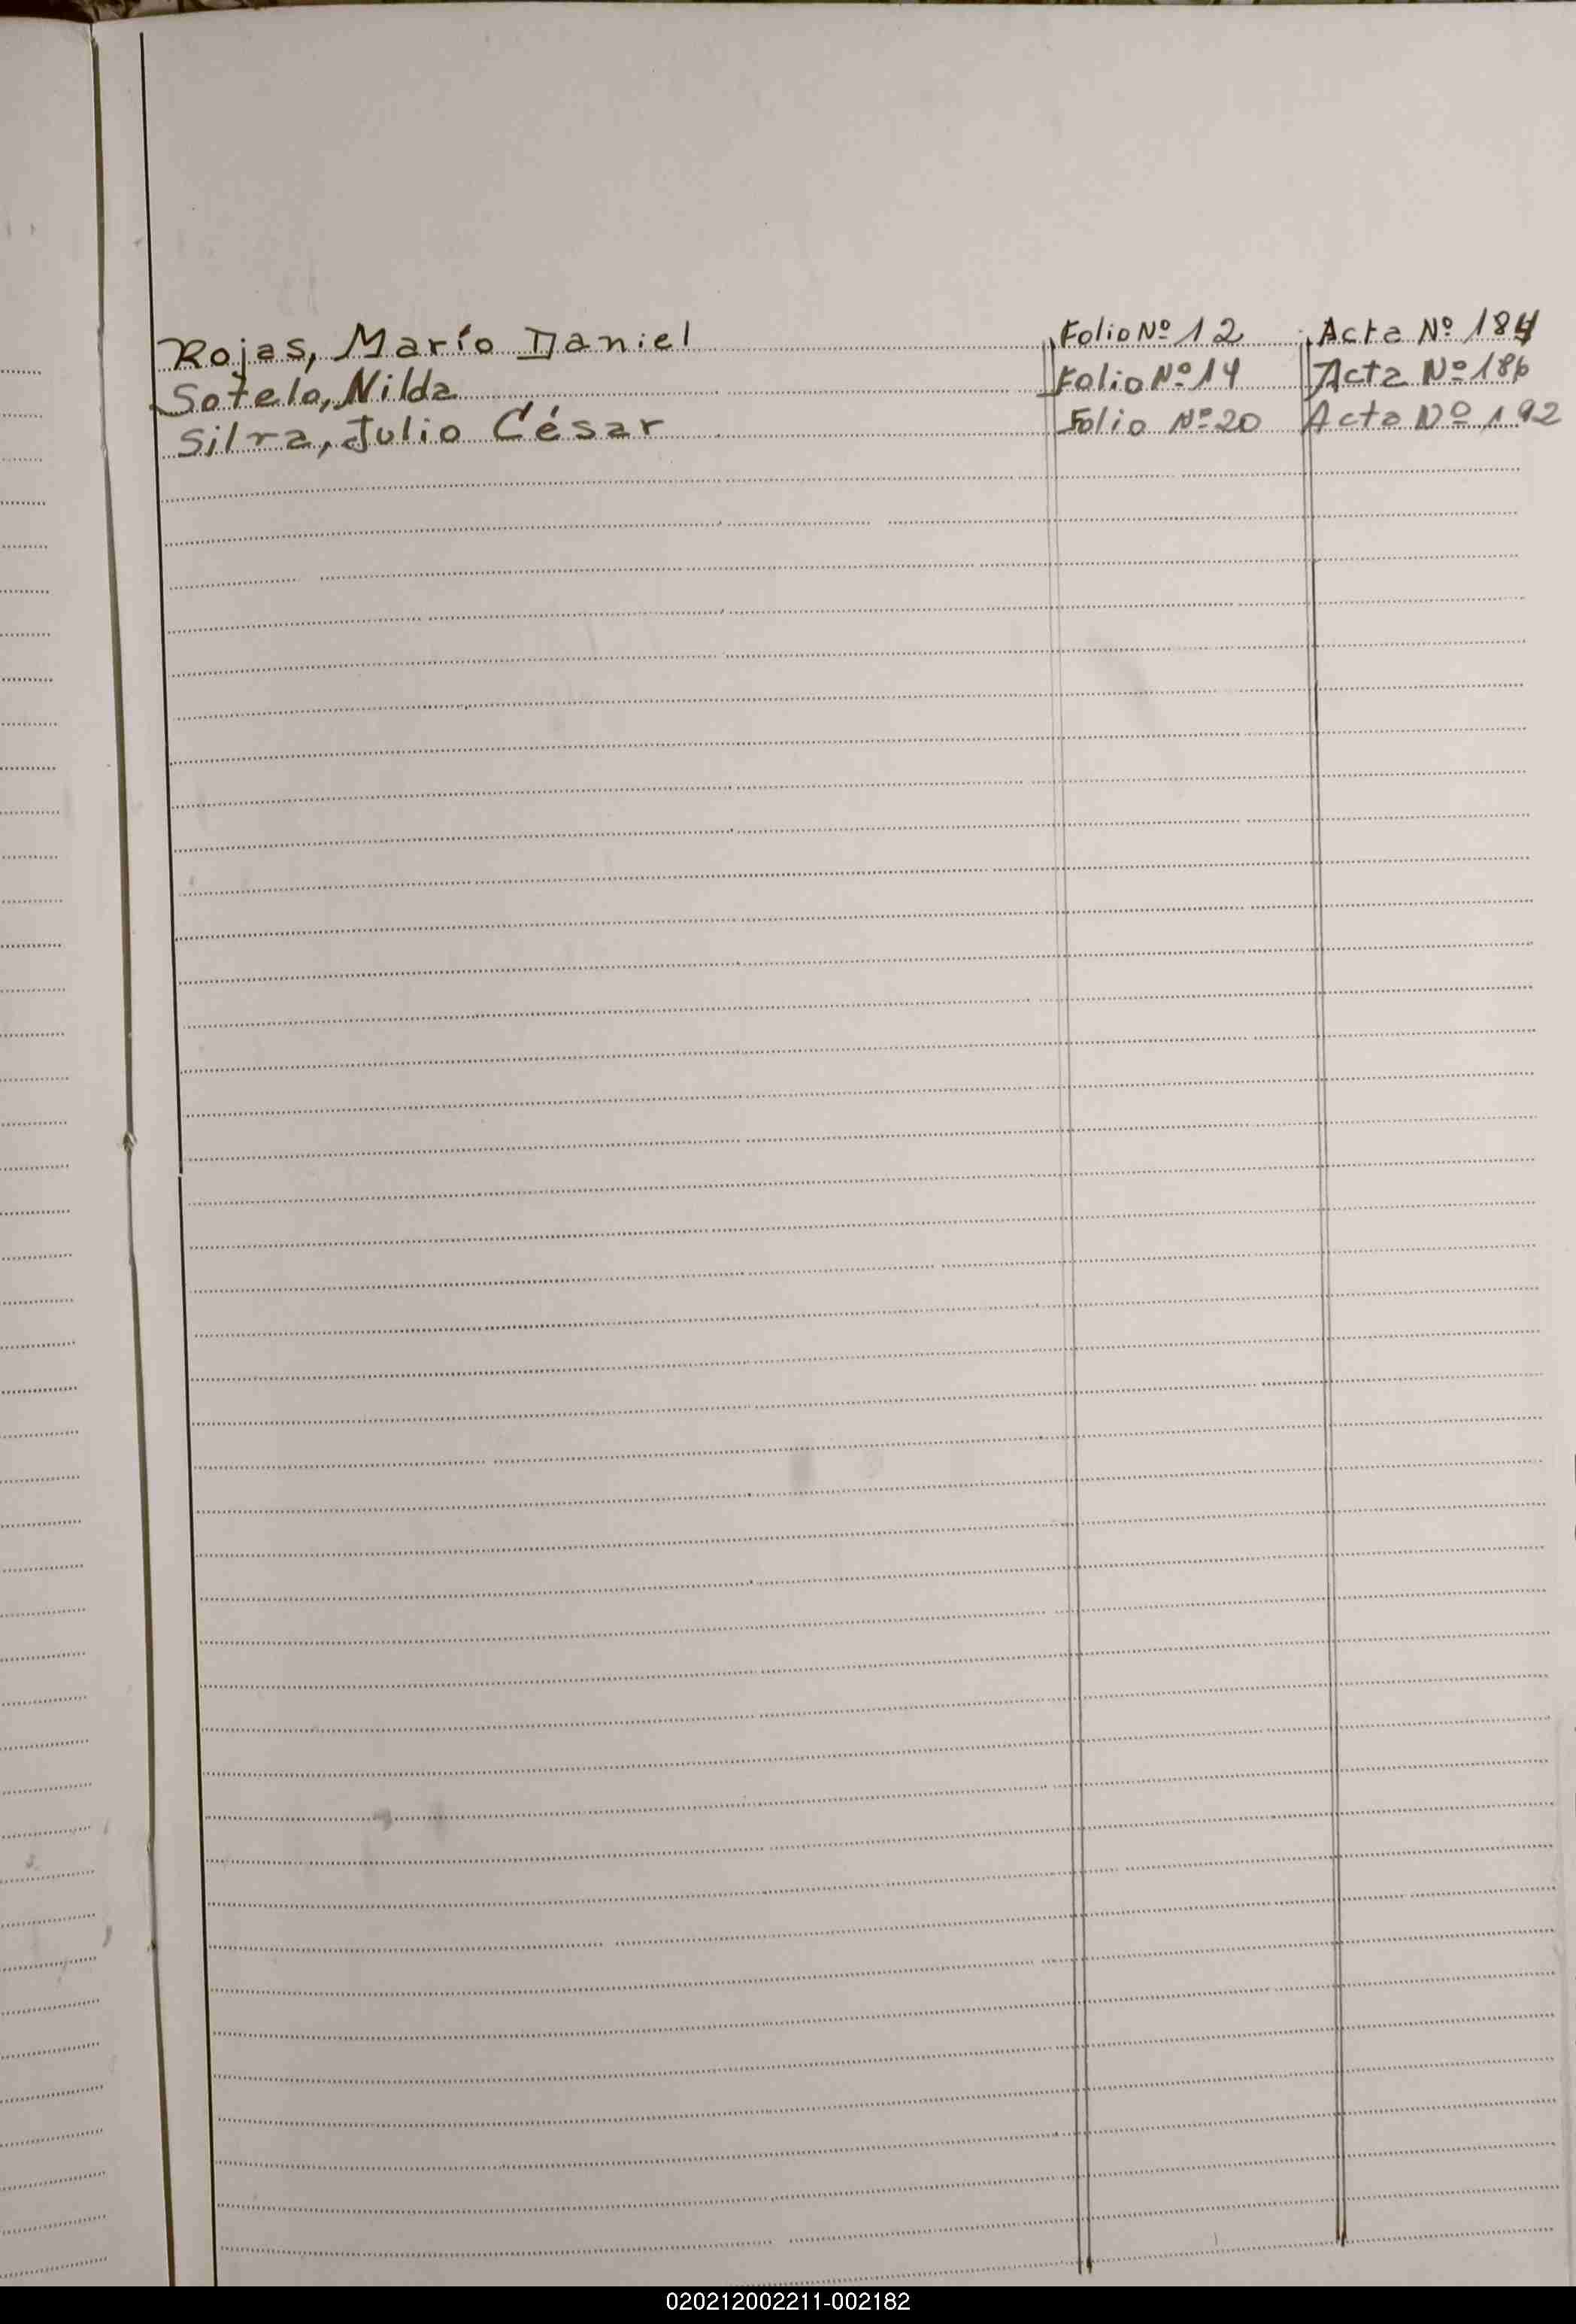 Rojas, Marío Daniel Folio Nº 12 Acta Nº 184
Sotelo, Nilda Folio Nº 14 Acta Nº 186
Silva, Julio César Folio Nº 20 Acta Nº 192
020212002211-002182